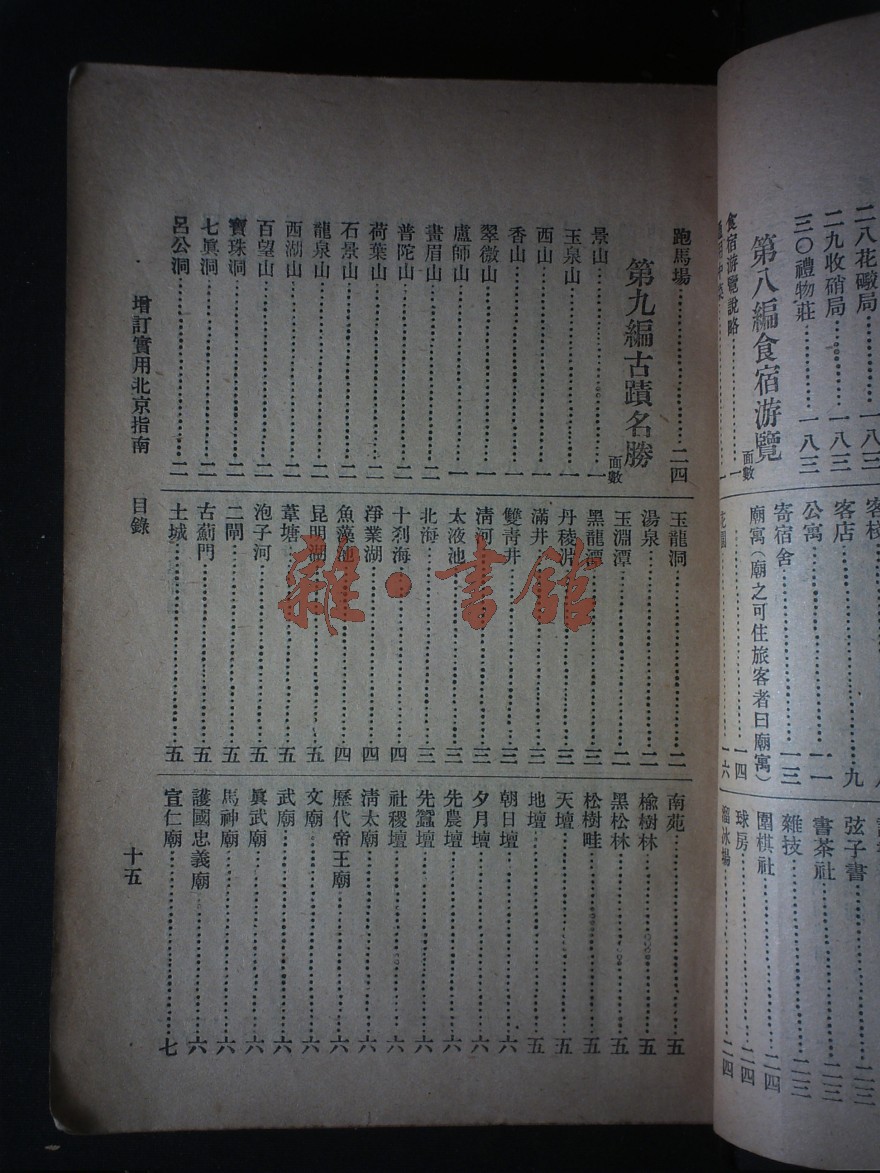 二八花廠局……一八三
二九收硝局……一八三
三〇禮物莊……一八三
第八編食宿游覽
面數
食宿游覽說略……一
客店……九
公寓……一一
寄宿舍……一三
廟寓(廟之可住旅客者曰廟寓)
……一四
花園……一六
弦子書……二三
書茶社……二三
雜技……二三
圍棋社……二四
球房……二四
溜冰場……二四
跑馬場……二四
第九編古蹟名勝
面數
景山……一
玉泉山……一
西山……一
香山……一
翠微山……一
盧師山……一
畫眉山……二
普陀山……二
荷葉山……二
石景山……二
龍泉山……二
西湖山……二
百望山……二
寶珠洞……二
七眞洞……二
呂公洞……二
玉龍洞……二
湯泉……二
玉淵潭……二
黑龍潭……三
丹稜沜……三
滿井……三
雙靑井……三
淸河……三
太液池……三
北海……三
十刹海……四
淨業湖……四
魚藻池……四
昆明湖……五
葦塘……五
泡子河……五
二閘……五
古薊門……五
土城……五
南苑……五
榆樹林……五
黑松林……五
松樹畦……五
天壇……五
地壇……五
朝日壇……六
夕月壇……六
先農壇……六
先蠶壇……六
社稷壇……六
淸太廟……六
歷代帝王廟……六
文廟……六
武廟……六
眞武廟……六
馬神廟……六
護國忠義廟……六
宣仁廟……七
增訂實用北京指南 目錄 十五
雜·書館